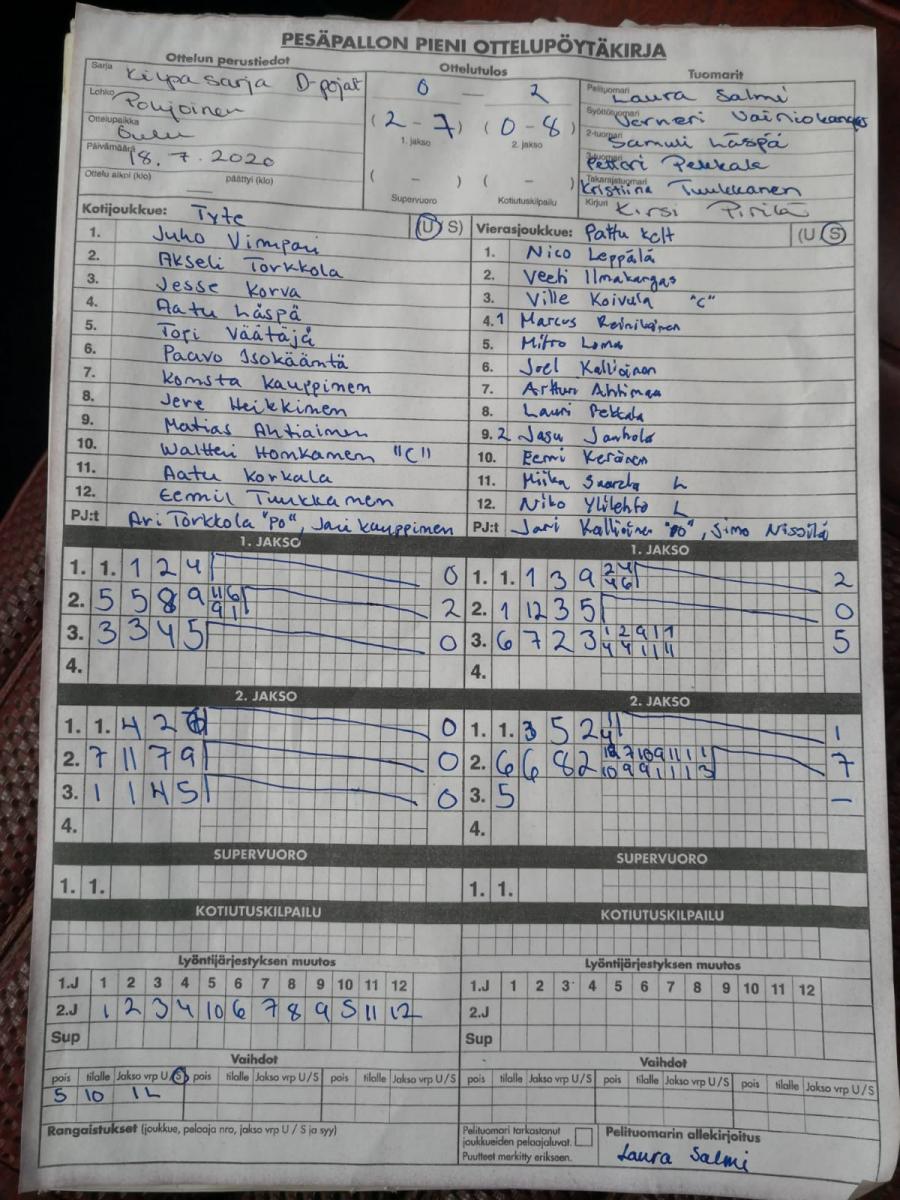 PESÄPALLON PIENI OTTELUPÖYTÄKIRJA
Ottelun perustiedot
Sarja Kilpasarja D-pojat
Lohko Pohjoinen
Ottelupaikka Oulu
Päivämäärä 18.7.2020
Ottelu alkoi (klo) — päättyi (klo)
Ottelutulos
0 — 2
(2-7) (0-8)
1. jakso 2. jakso
( - ) ( - )
Supervuoro Kotiutuskilpailu
Tuomarit
Pelituomari Laura Salmi
Syöttötuomari Verneri Vainiokangas
2-tuomari Samuli Läspä
3-tuomari Petteri Pekkala
Takarajatuomari Kristiina Tuukkanen
Kirjuri Kirsi Pirilä
Kotijoukkue: Tyte (U S)
1. Juho Vimpari
2. Akseli Torkkola
3. Jesse Korva
4. Aatu Läspä
5. Topi Väätäjä
6. Paavo Isokääntä
7. Komsta Kauppinen
8. Jere Heikkinen
9. Matias Ahtiainen
10. Waltteri Honkanen "C"
11. Aatu Korkala
12. Eemil Tuukkanen
PJ:t Ari Torkkola "PO", Jari Kauppinen
Vierasjoukkue: Pattu kelt (U S)
1. Nico Leppälä
2. Veeti Ilmakangas
3. Ville Koivula "C"
4. 1 Marcus Reinikainen
5. Mitro Loma
6. Joel Kallioinen
7. Artturi Ahtimaa
8. Lauri Pekkala
9. 2 Jasu Janhola
10. Eemi Keränen
11. Miika L
12. Niko Ylilehto L
PJ:t Jari Kallioinen "PO", Simo Nissilä
1. JAKSO
1. 1. 1 2 4 0
2. 5 5 8 9 11 6 2
9 1
3. 3 3 4 5 0
4.
1. JAKSO
1. 1. 1 3 9 2 4 2
4 6
2. 1 12 3 5 0
3. 6 7 2 3 1 2 9 1 1 5
4 4 1 1 11
4.
2. JAKSO
1. 1. 4 2 0
2. 7 11 7 9 0
3. 1 1 4 5 0
4.
2. JAKSO
1. 1. 3 5 2 1 1
4
2. 6 6 8 2 12 7 10 9 11 1 1 7
10 9 9 1 1 1 3
3. 5 —
4.
SUPERVUORO
1. 1.
SUPERVUORO
1. 1.
KOTIUTUSKILPAILU
KOTIUTUSKILPAILU
Lyöntijärjestyksen muutos
1.J 1 2 3 4 5 6 7 8 9 10 11 12
2.J 1 2 3 4 10 6 7 8 9 5 11 12
Sup
Lyöntijärjestyksen muutos
1.J 1 2 3 4 5 6 7 8 9 10 11 12
2.J
Sup
Vaihdot
pois tilalle Jakso vrp U/S pois tilalle Jakso vrp U/S pois tilalle Jakso vrp U/S
5 10 1L
Vaihdot
pois tilalle Jakso vrp U/S pois tilalle Jakso vrp U/S pois tilalle Jakso vrp U/S
Rangaistukset (joukkue, pelaaja nro, jakso vrp U / S ja syy)
Pelituomari tarkastanut
joukkueiden pelaajaluvat.
Puutteet merkitty erikseen.
Pelituomarin allekirjoitus
Laura Salmi